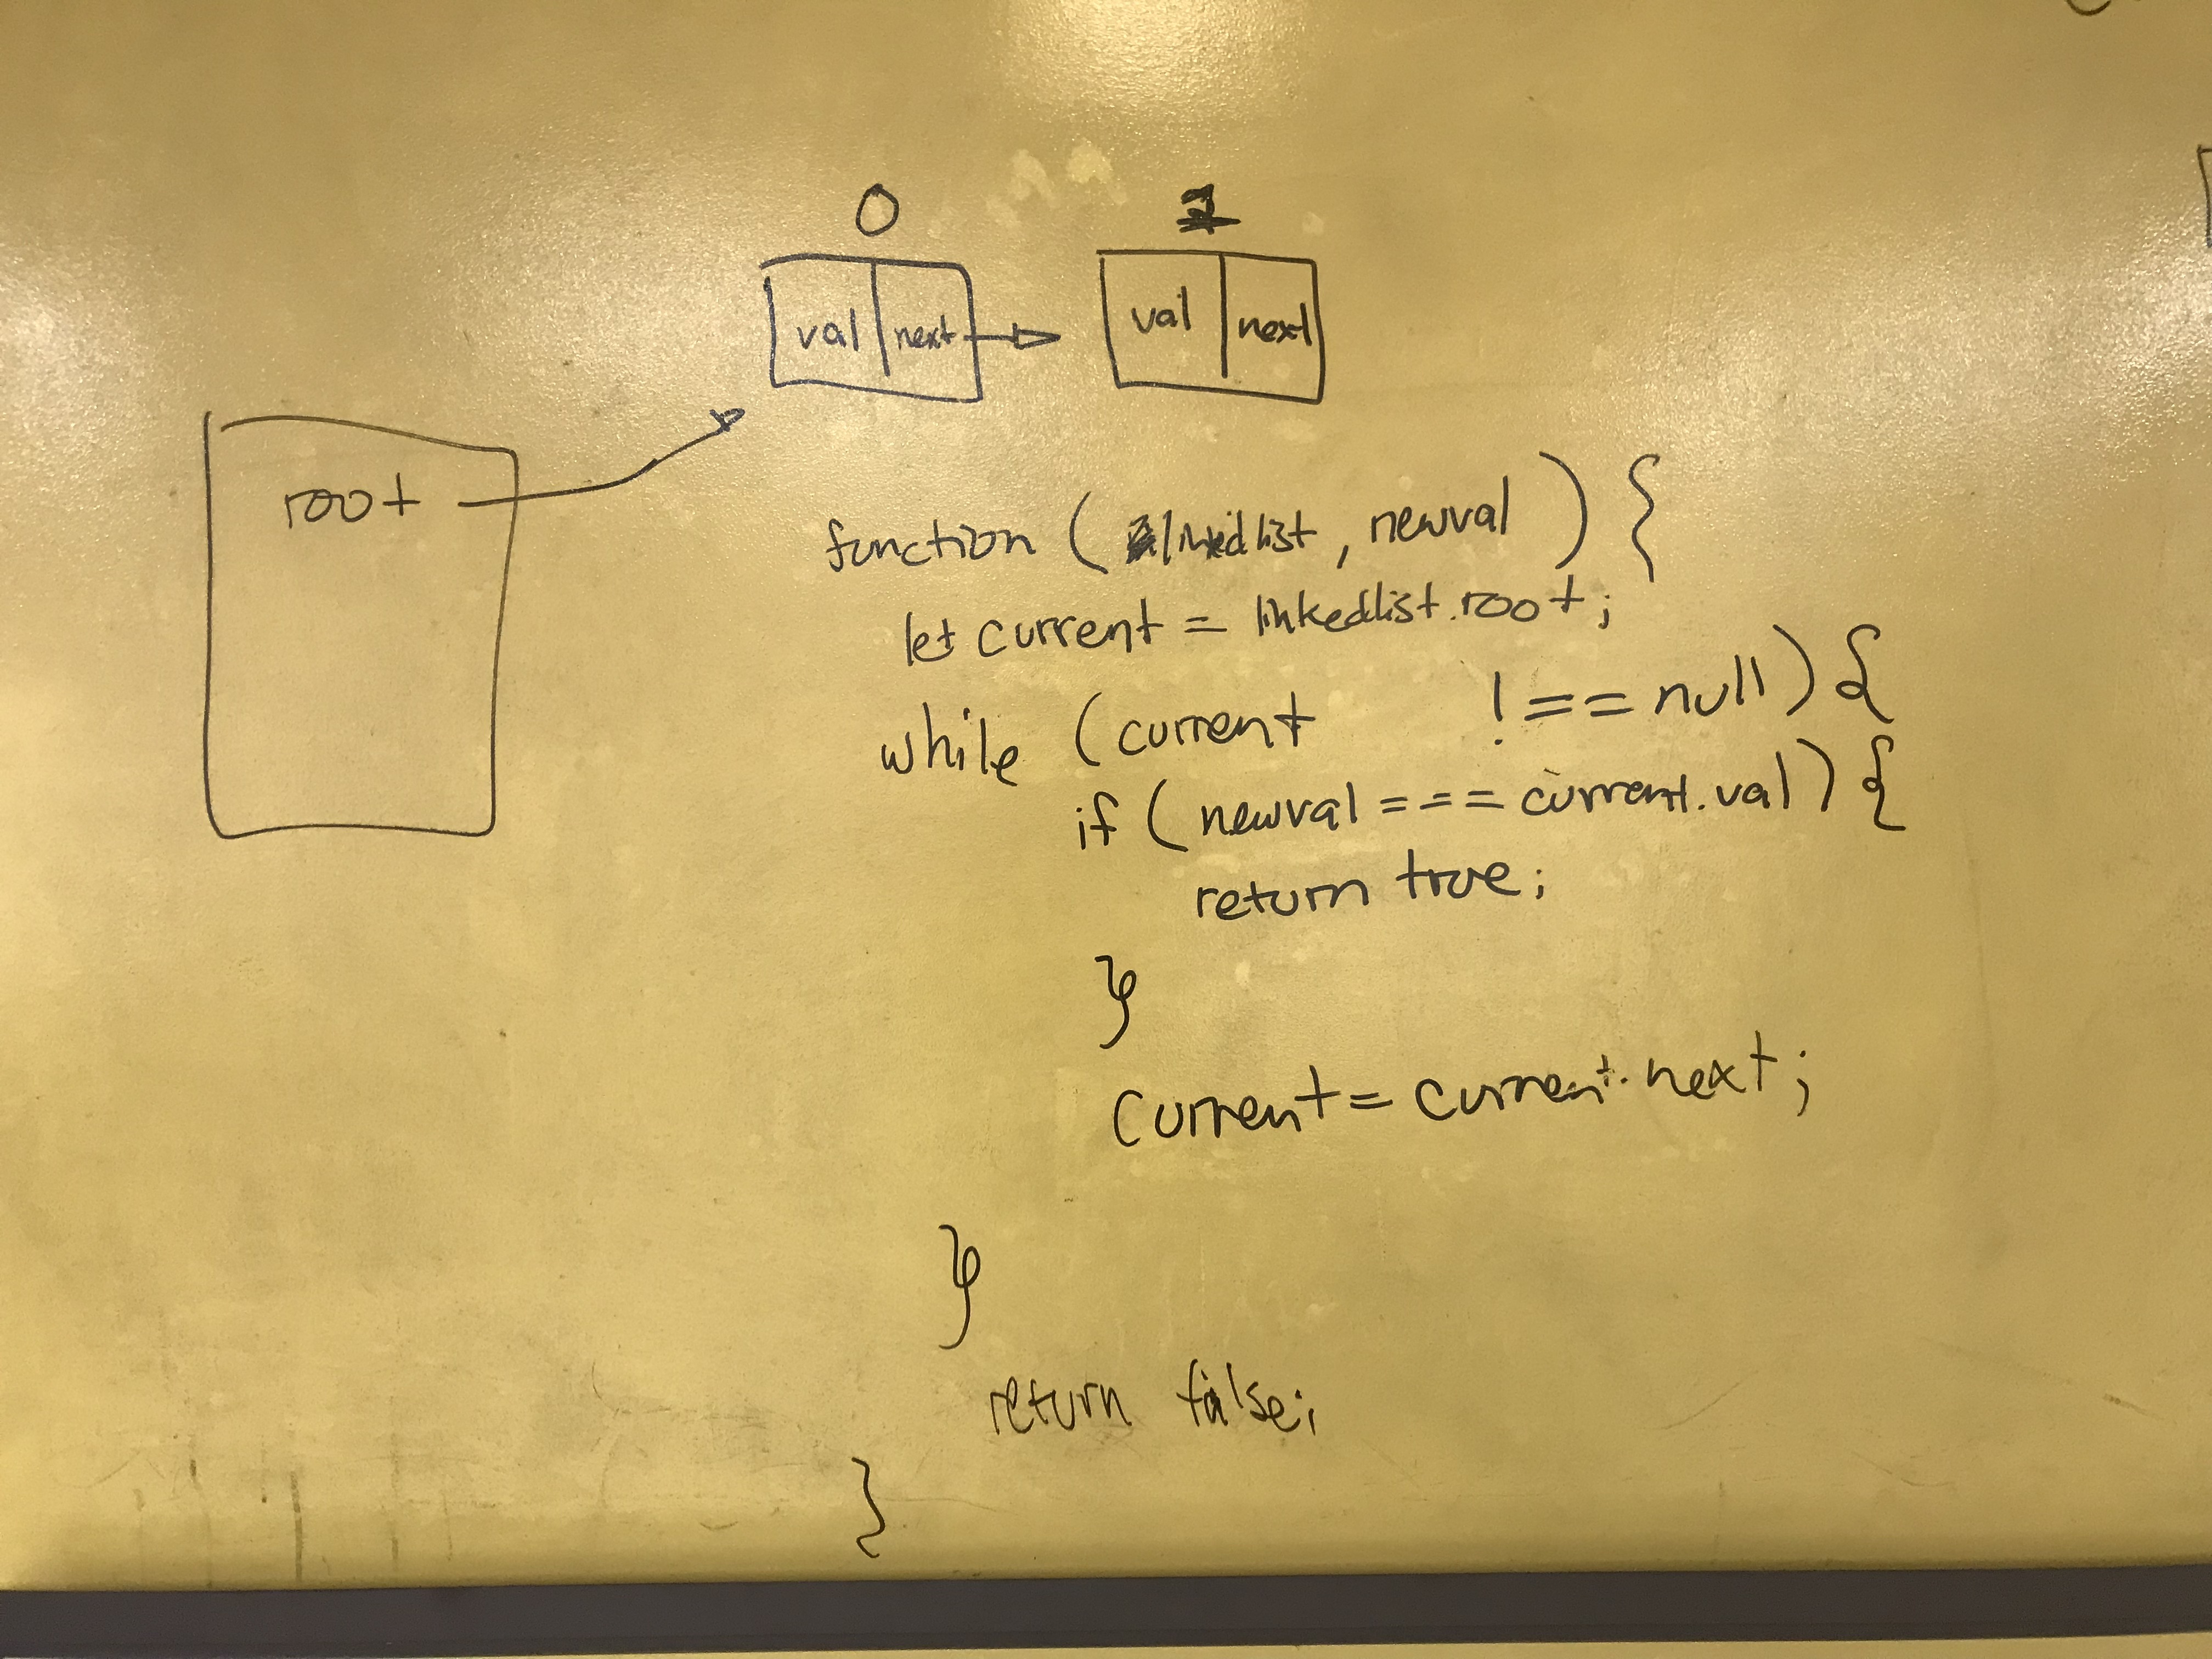 0
val next
val next
root
function ( linkedlist, newval ) {
let current = linkedlist.root;
while (current !== null) {
if ( newval === current.val) {
return true;
}
current = current.next;
}
return false;
}